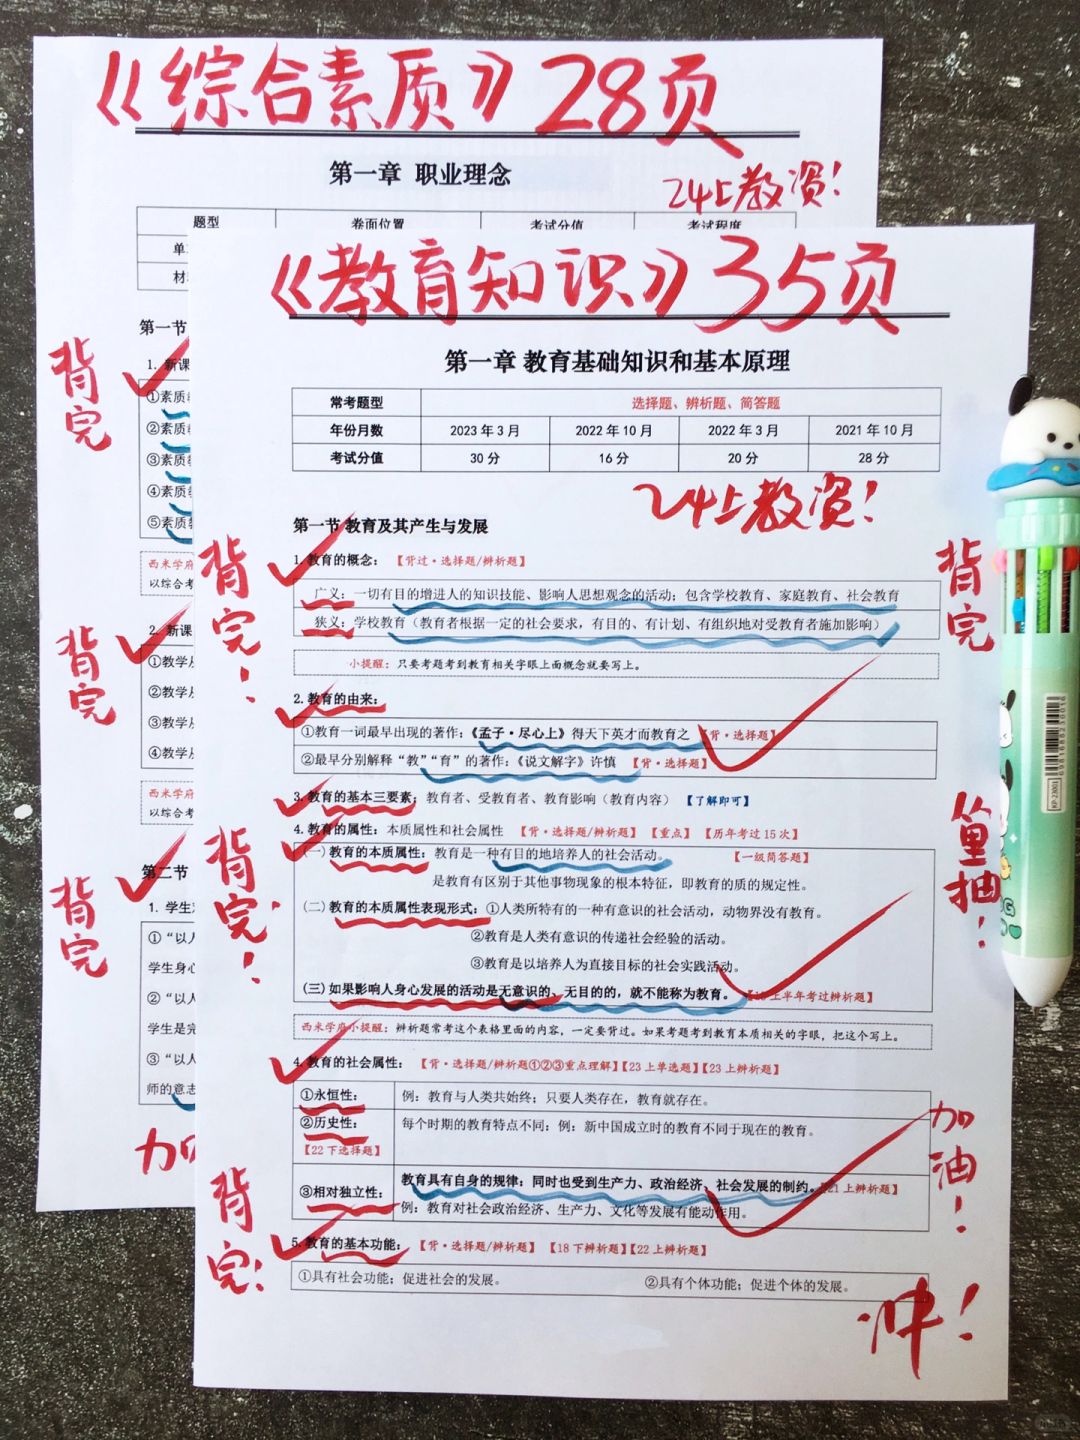 《综合素质》28页
第一章 职业理念
24上教资！
题型 卷面位置 考试分值 考试程度
单
材
第一节
1. 新课
①素质教
②素质教
③素质教
④素质教
⑤素质教
西米学府
以综合考
2. 新课
①教学从
②教学从
③教学从
④教学从
西米学府
以综合考
第二节
1. 学生观
①“以人
学生身心
②“以人
学生是完
③“以人
师的意志
背完
背完
背完
加
《教育知识》35页
第一章 教育基础知识和基本原理
常考题型 选择题、辨析题、简答题
年份月数 2023年3月 2022年10月 2022年3月 2021年10月
考试分值 30分 16分 20分 28分
24上教资！
第一节 教育及其产生与发展
1. 教育的概念：【背过·选择题/辨析题】
广义：一切有目的增进人的知识技能、影响人思想观念的活动；包含学校教育、家庭教育、社会教育
狭义：学校教育（教育者根据一定的社会要求，有目的、有计划、有组织地对受教育者施加影响）
小提醒：只要考题考到教育相关字眼上面概念就要写上。
2. 教育的由来：
①教育一词最早出现的著作：《孟子·尽心上》得天下英才而教育之【背·选择题】
②最早分别解释“教”“育”的著作：《说文解字》许慎【背·选择题】
3. 教育的基本三要素：教育者、受教育者、教育影响（教育内容）【了解即可】
4. 教育的属性：本质属性和社会属性【背·选择题/辨析题】【重点】【历年考过15次】
(一) 教育的本质属性：教育是一种有目的地培养人的社会活动。【一级简答题】
是教育有区别于其他事物现象的根本特征，即教育的质的规定性。
(二) 教育的本质属性表现形式：①人类所特有的一种有意识的社会活动，动物界没有教育。
②教育是人类有意识的传递社会经验的活动。
③教育是以培养人为直接目标的社会实践活动。
(三) 如果影响人身心发展的活动是无意识的、无目的的，就不能称为教育。【18上半年考过辨析题】
西米学府小提醒：辨析题常考这个表格里面的内容，一定要背过。如果考题考到教育本质相关的字眼，把这个写上。
4. 教育的社会属性：【背·选择题/辨析题①②③重点理解】【23上单选题】【23上辨析题】
①永恒性： 例：教育与人类共始终；只要人类存在，教育就存在。
②历史性： 每个时期的教育特点不同：例：新中国成立时的教育不同于现在的教育。
【22下选择题】
③相对独立性： 教育具有自身的规律；同时也受到生产力、政治经济、社会发展的制约。【21上辨析题】
例：教育对社会政治经济、生产力、文化等发展有能动作用。
5. 教育的基本功能：【背·选择题/辨析题】【18下辨析题】【22上辨析题】
①具有社会功能；促进社会的发展。 ②具有个体功能；促进个体的发展。
背完！
背完！
背完！
背完
直抽！
加油！
冲！